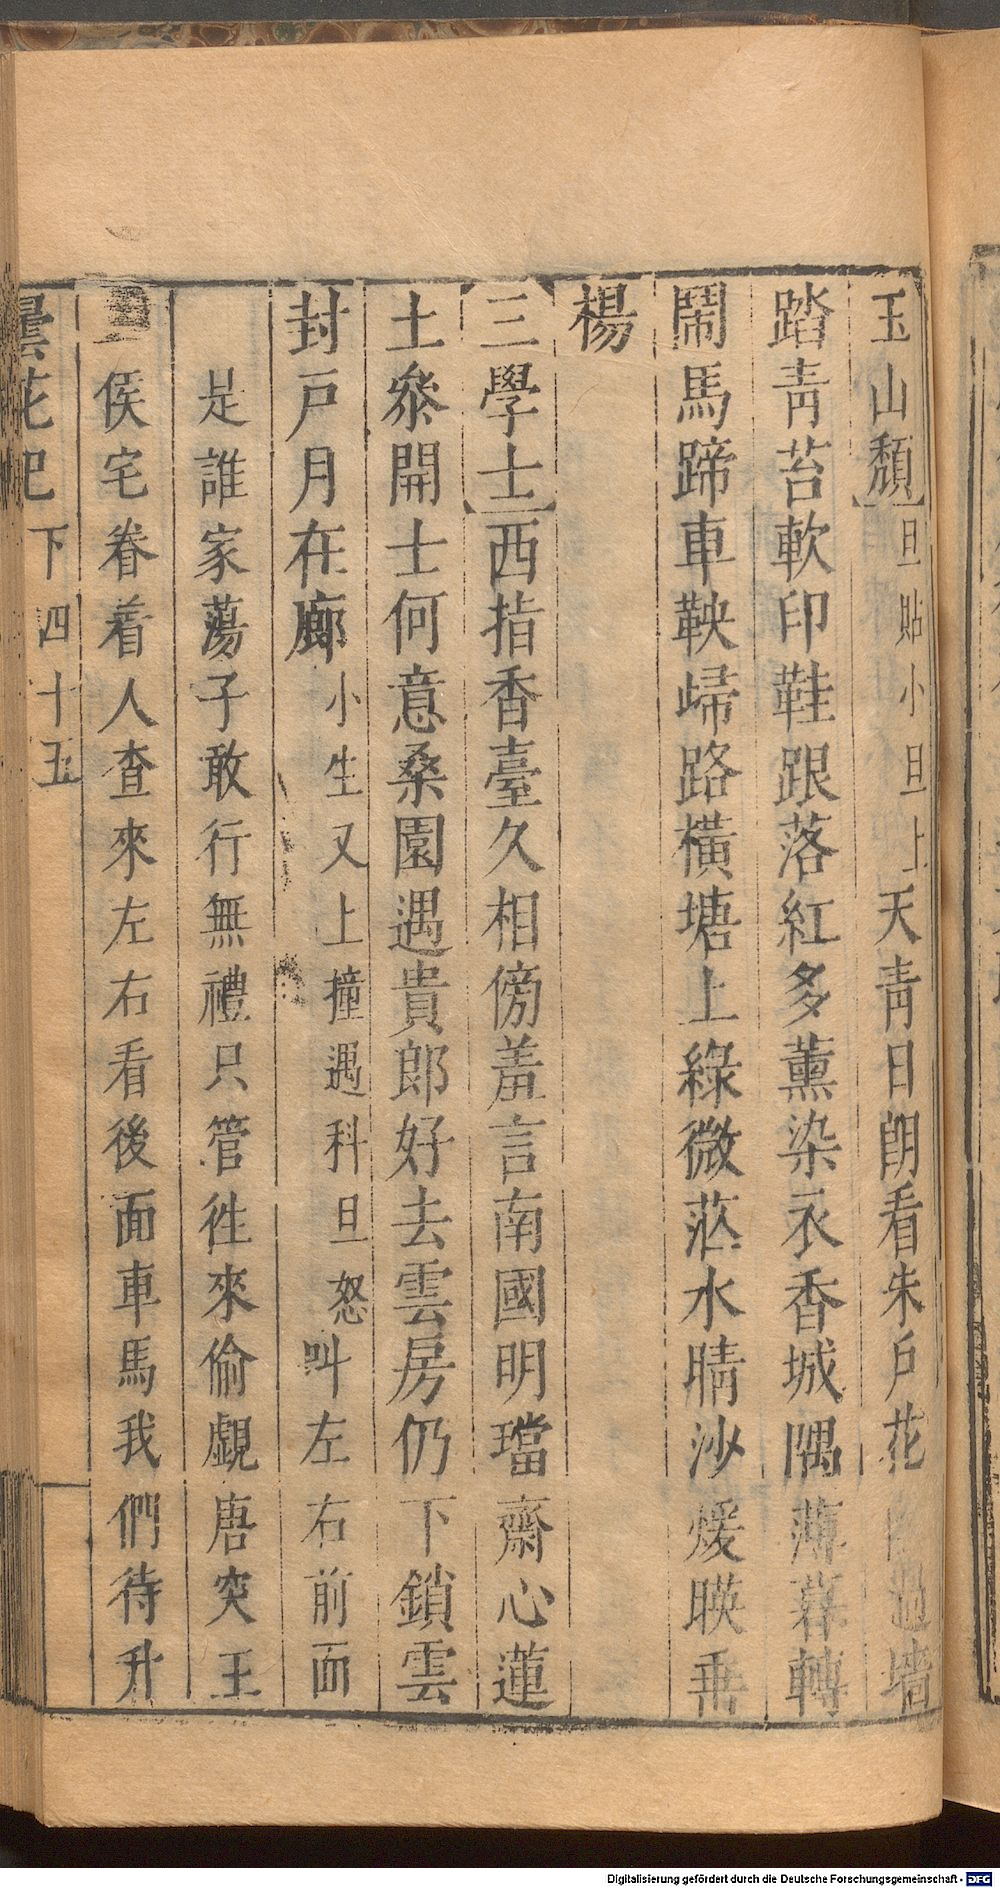 玉山頹】旦貼小旦上天青日朗看朱戶花過墻
踏青苔軟印鞋跟落紅多薰染衣香城隅薄暮轉
鬧馬蹄車鞅歸路橫塘上綠微茫水晴沙煖暎垂
楊
【三學士】西指香臺久相傍羞言南國明璫齋心蓮
土叅開士何意桑園遇貴郎好去雲房仍下鎖雲
封戸月在廊小生又上撞遇科旦怒叫左右前面
是誰家蕩子敢行無禮只管徃來偷覷唐突王
侯宅眷着人查來左右看後面車馬我們待升
曇花記 下 四十五
Digitalisierung gefördert durch die Deutsche Forschungsgemeinschaft - DFG